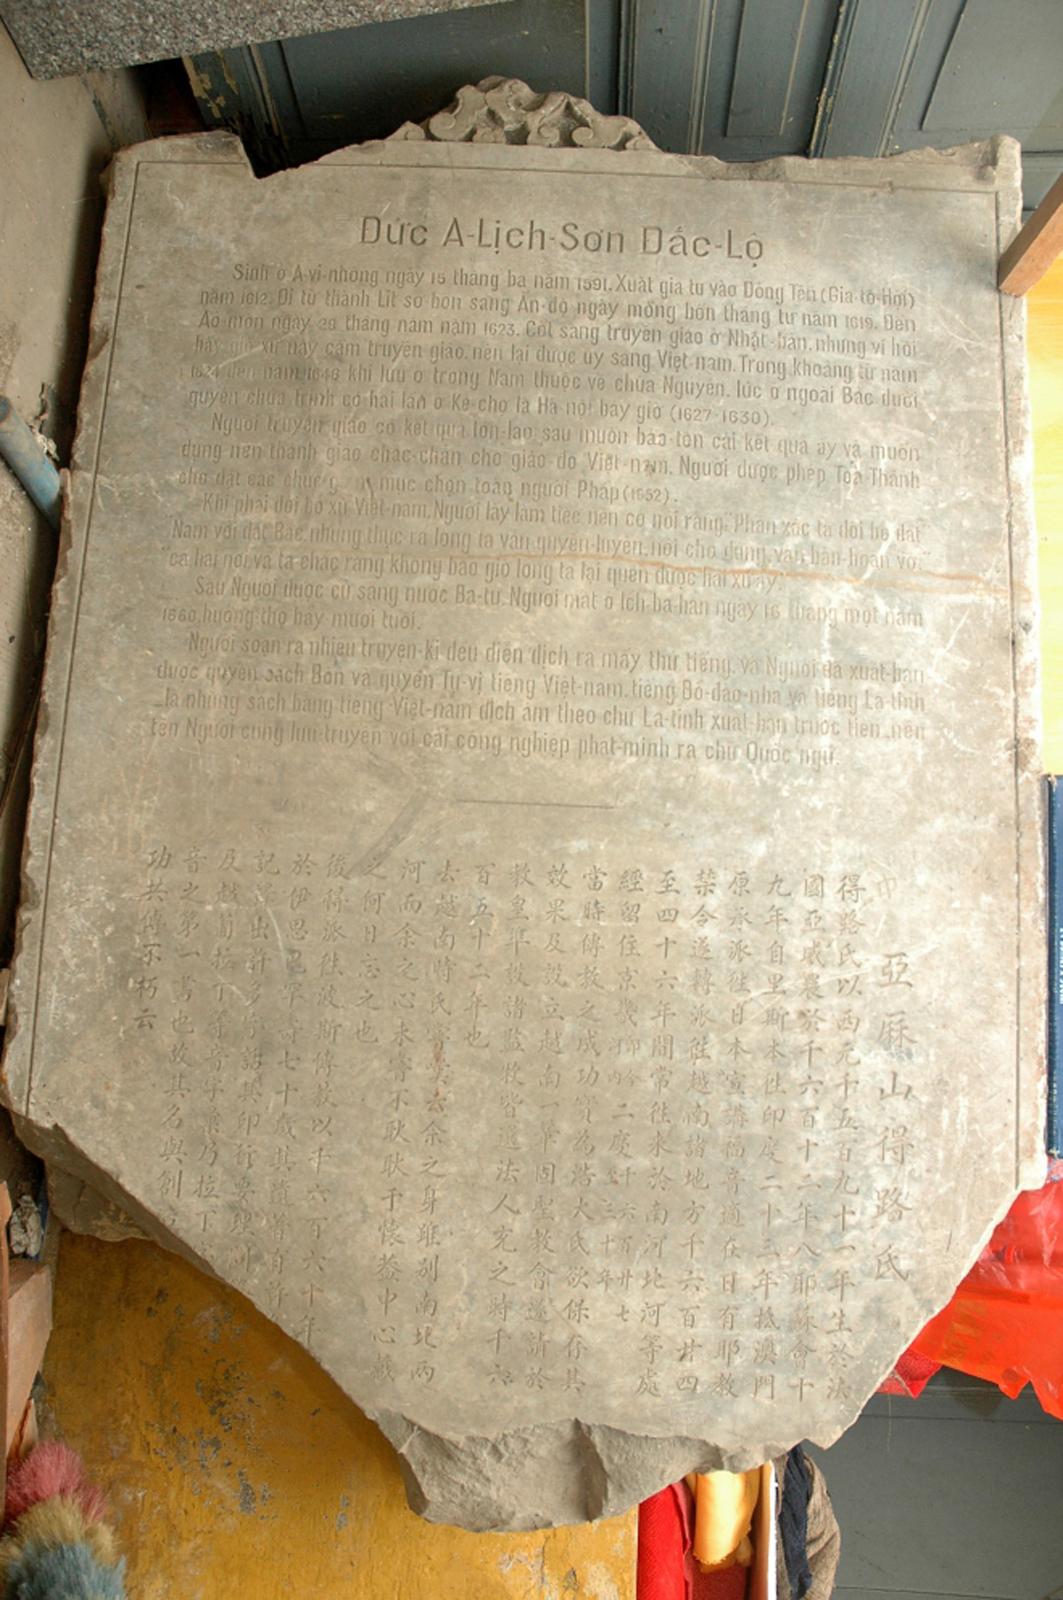 Đức A-Lịch-Sơn Đắc-Lộ
Sinh ở A-vi-nhông ngày 15 tháng ba năm 1591. Xuất gia tu vào Dòng Tên (Gia-tô-Hội)
năm 1612. Đi từ thành Lít sơ bon sang Ấn-độ ngày mồng bốn tháng tư năm 1619. Đến
Áo-môn ngày 29 tháng năm năm 1623. Cốt sang truyền giáo ở Nhật-bản, nhưng vì hồi
bấy giờ xứ này cấm truyền giáo, nên lại được ủy sang Việt-nam. Trong khoảng từ năm
1624 đến năm 1646 khi lưu ở trong Nam thuộc về chúa Nguyễn, lúc ở ngoài Bắc dưới
quyền chúa Trịnh có hai lần ở Kẻ-chợ là Hà nội bây giờ (1627-1630).
Người truyền giáo có kết quả lớn-lao, sau muốn bảo-tồn cái kết quả ấy và muốn
dựng nên thánh giáo chắc-chắn cho giáo đồ Việt-nam. Người được phép Toà Thánh
cho đặt các chức giám mục chọn toàn người Pháp (1652).
Khi phải dời bỏ xứ Việt-nam. Người lấy làm tiếc nên có nói rằng: "Phần xác ta dời bỏ đất
Nam với đất Bắc, nhưng thực ra lòng ta vẫn quyến-luyến, nói cho đáng, vẫn bàn-hoàn với
"cả hai nơi và ta chắc rằng không bao giờ lòng ta lại quên được hai xứ ấy".
Sau Người được cử sang nước Ba-tư. Người mất ở Ích-ba-han ngày 16 tháng một năm
1660, hưởng thọ bảy mươi tuổi.
Người soạn ra nhiều truyện-kí đều diễn dịch ra mấy thứ tiếng, và Người đã xuất-bản
được quyển sách Bổn và quyển Tự-vị tiếng Việt-nam, tiếng Bồ-đào-nha và tiếng La-tinh
là những sách bằng tiếng Việt-nam dịch âm theo chữ La-tinh xuất-bản trước tiên, nên
tên Người cũng lưu-truyền với cái công nghiệp phát-minh ra chữ Quốc ngữ.
亞厤山得路氏
得路氏以西元千五百九十一年生於法
國亞威農於千六百十二年入耶穌會十
九年自里斯本往印度二十三年抵澳門
原承派往日本宣講福音適在日有耶教
禁令遂轉派往越南諸地方千六百廿四
至四十六年間常往來於南河北河等處
經留住京畿 二度
當時傳教之成功實為浩大氏欲保存其
效果及設立越南一鞏固聖教會遂請於
教皇準設諸監牧皆選法人充之時千六
百五十二年也
去越南時氏嘗嘆云余之身雖別南北兩
河而余之心未嘗不耿耿于懷蓋中心藏
之何日忘之也
後得派往波斯傳教以千六百六十年
於伊思 七十歲其遺著自
記 出許多 話其印行要
及越葡拉丁 字彙乃拉丁
音之第一書也故其名與創
功共傳不朽云